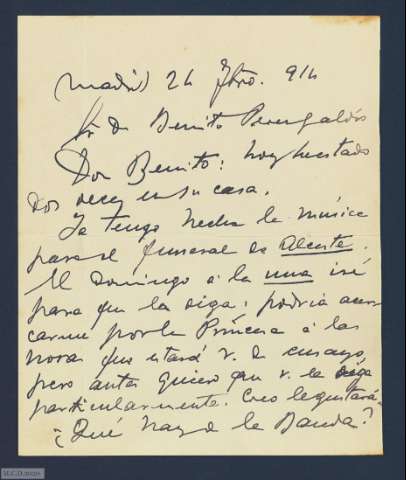 Madrid 24 Fbro. 914
Sr. D. Benito Perez Galdós
Don Benito: hoy he estado
dos veces en su casa.
Ya tengo hecha la música
para el funeral de Alceste.
El Domingo á la una iré
para que la oiga: podria acer-
carme por la Princesa á las
horas que estará V. de ensayo,
pero antes quiero que V. la oiga
particularmente. Creo le gustará.
¿Qué hay de la Banda?